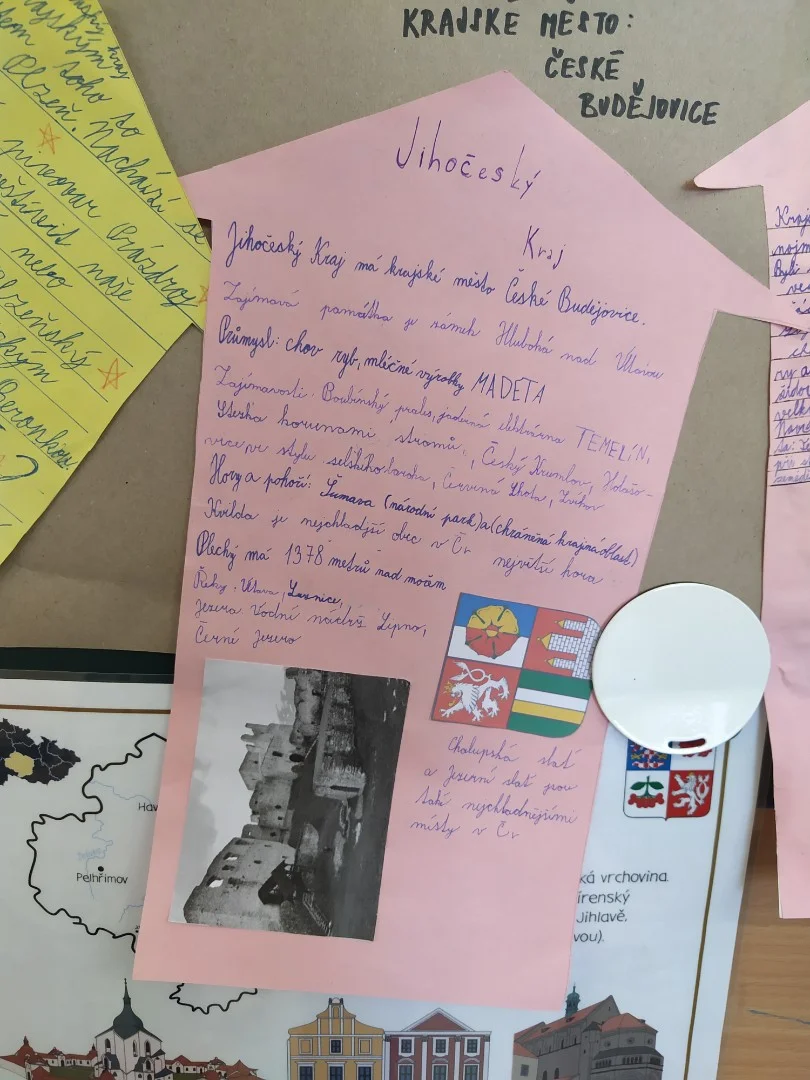 KRAJSKÉ MĚSTO:
ČESKÉ
BUDĚJOVICE
toho to
Plzeň. Nachází se
pivovar Prázdroj
naše
nebo
Jihočeský
Kraj
Jihočeský Kraj má krajské město České Budějovice.
Zajímavá památka je zámek Hluboká nad Vltavou
Průmysl: chov ryb, mléčné výrobky MADETA
Zajímavosti: Boubínský prales, jaderná elektrárna TEMELÍN,
Stezka korunami stromů, Český Krumlov, Holašo-
vice ve stylu selského baroka, Červená Lhota, Zvíkov
Hory a pohoří: Šumava (národní park) a (chráněná krajná oblast)
Kvilda je nejchladjší obec v Čr největší hora
Plechý má 1378 metrů nad mořem
Řeky: Vltava, Luznice,
Jezera Vodní nádrž Lipno,
Černé Jezero
Chalupská slať
a Jezerní slať jsou
také nejchladnějšími
místy v Čr
Hav
Pelhřimov
ká vrchovina.
írenský
Jihlavě,
vou).